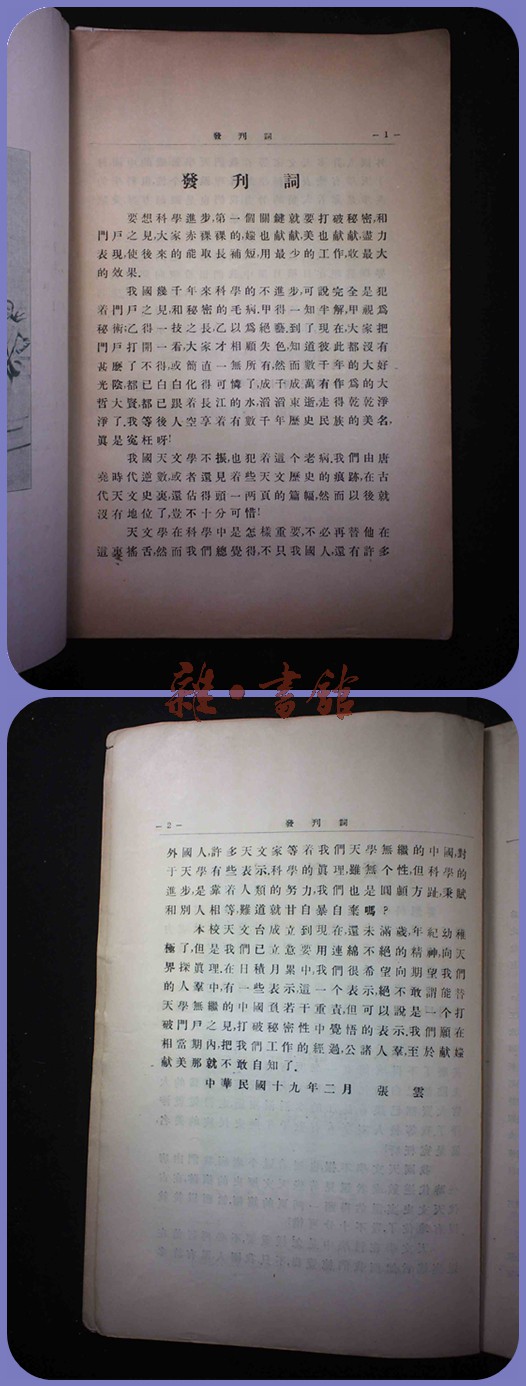 發刊詞 －1－
發刊詞
要想科學進步,第一個關鍵就要打破秘密,和
門戶之見,大家赤裸裸的,媸也獻獻,美也獻獻,盡力
表現,使後來的能取長補短,用最少的工作,收最大
的效果.
我國幾千年來科學的不進步,可說完全是犯
着門戶之見和秘密的毛病.甲得一知半解,甲視爲
秘術;乙得一技之長,乙以爲絕藝,到了現在,大家把
門戶打開一看,大家才相顧失色,知道彼此都沒有
甚麽了不得,或簡直一無所有,然而數千年的大好
光陰,都已白白化得可憐了,成千成萬有作爲的大
哲大賢,都已跟着長江的水,滔滔東逝,走得乾乾淨
淨了.我等後人空享着有數千年歷史民族的美名,
眞是寃枉呀!
我國天文學不振,也犯着這个老病.我們由唐
堯時代逆數,或者還見着些天文歷史的痕跡,在古
代天文史裏,還佔得頭一两頁的篇幅,然而以後就
沒有地位了,豈不十分可惜!
天文學在科學中是怎樣重要,不必再替他在
這裏搖舌,然而我們總覺得,不只我國人,還有許多
雜·書館
－2－ 發刊詞
外國人,許多天文家等着我們天學無繼的中國,對
于天學有些表示.科學的眞理,雖無个性,但科學的
進步,是靠着人類的努力,我們也是圓顱方趾,秉賦
和別人相等,難道就甘自暴自棄嗎?
本校天文台成立到現在,還未滿歲,年紀幼稚
極了,但是我們已立意要用連綿不絕的精神,向天
界探眞理.在日積月累中,我們很希望向期望我們
的人羣中,有一些表示,這一个表示,絕不敢謂能替
天學無繼的中國負若干重責,但可以說是一个打
破門戶之見,打破秘密性中覺悟的表示.我們願在
相當期內,把我們工作的經過,公諸人羣,至於獻媸
獻美那就不敢自知了.
中華民國十九年二月 張雲